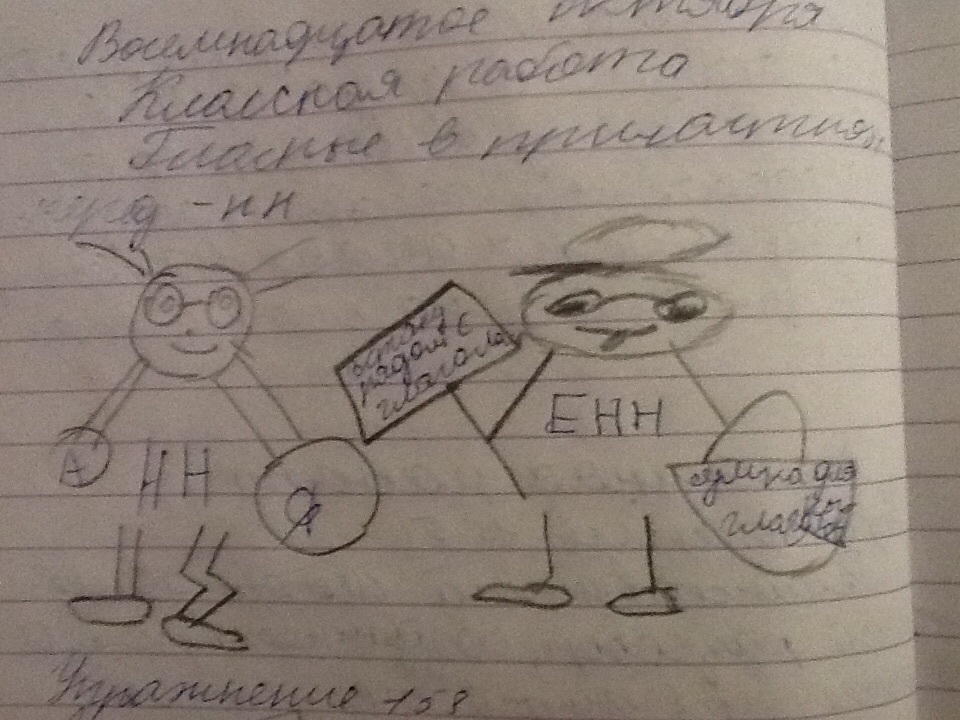 Восемнадцатое октября
Классная работа
Гласные в причастиях
перед -нн
А
НН
Я
рядом с
глагола
ЕНН
сумка для
глаго
Упражнение 158